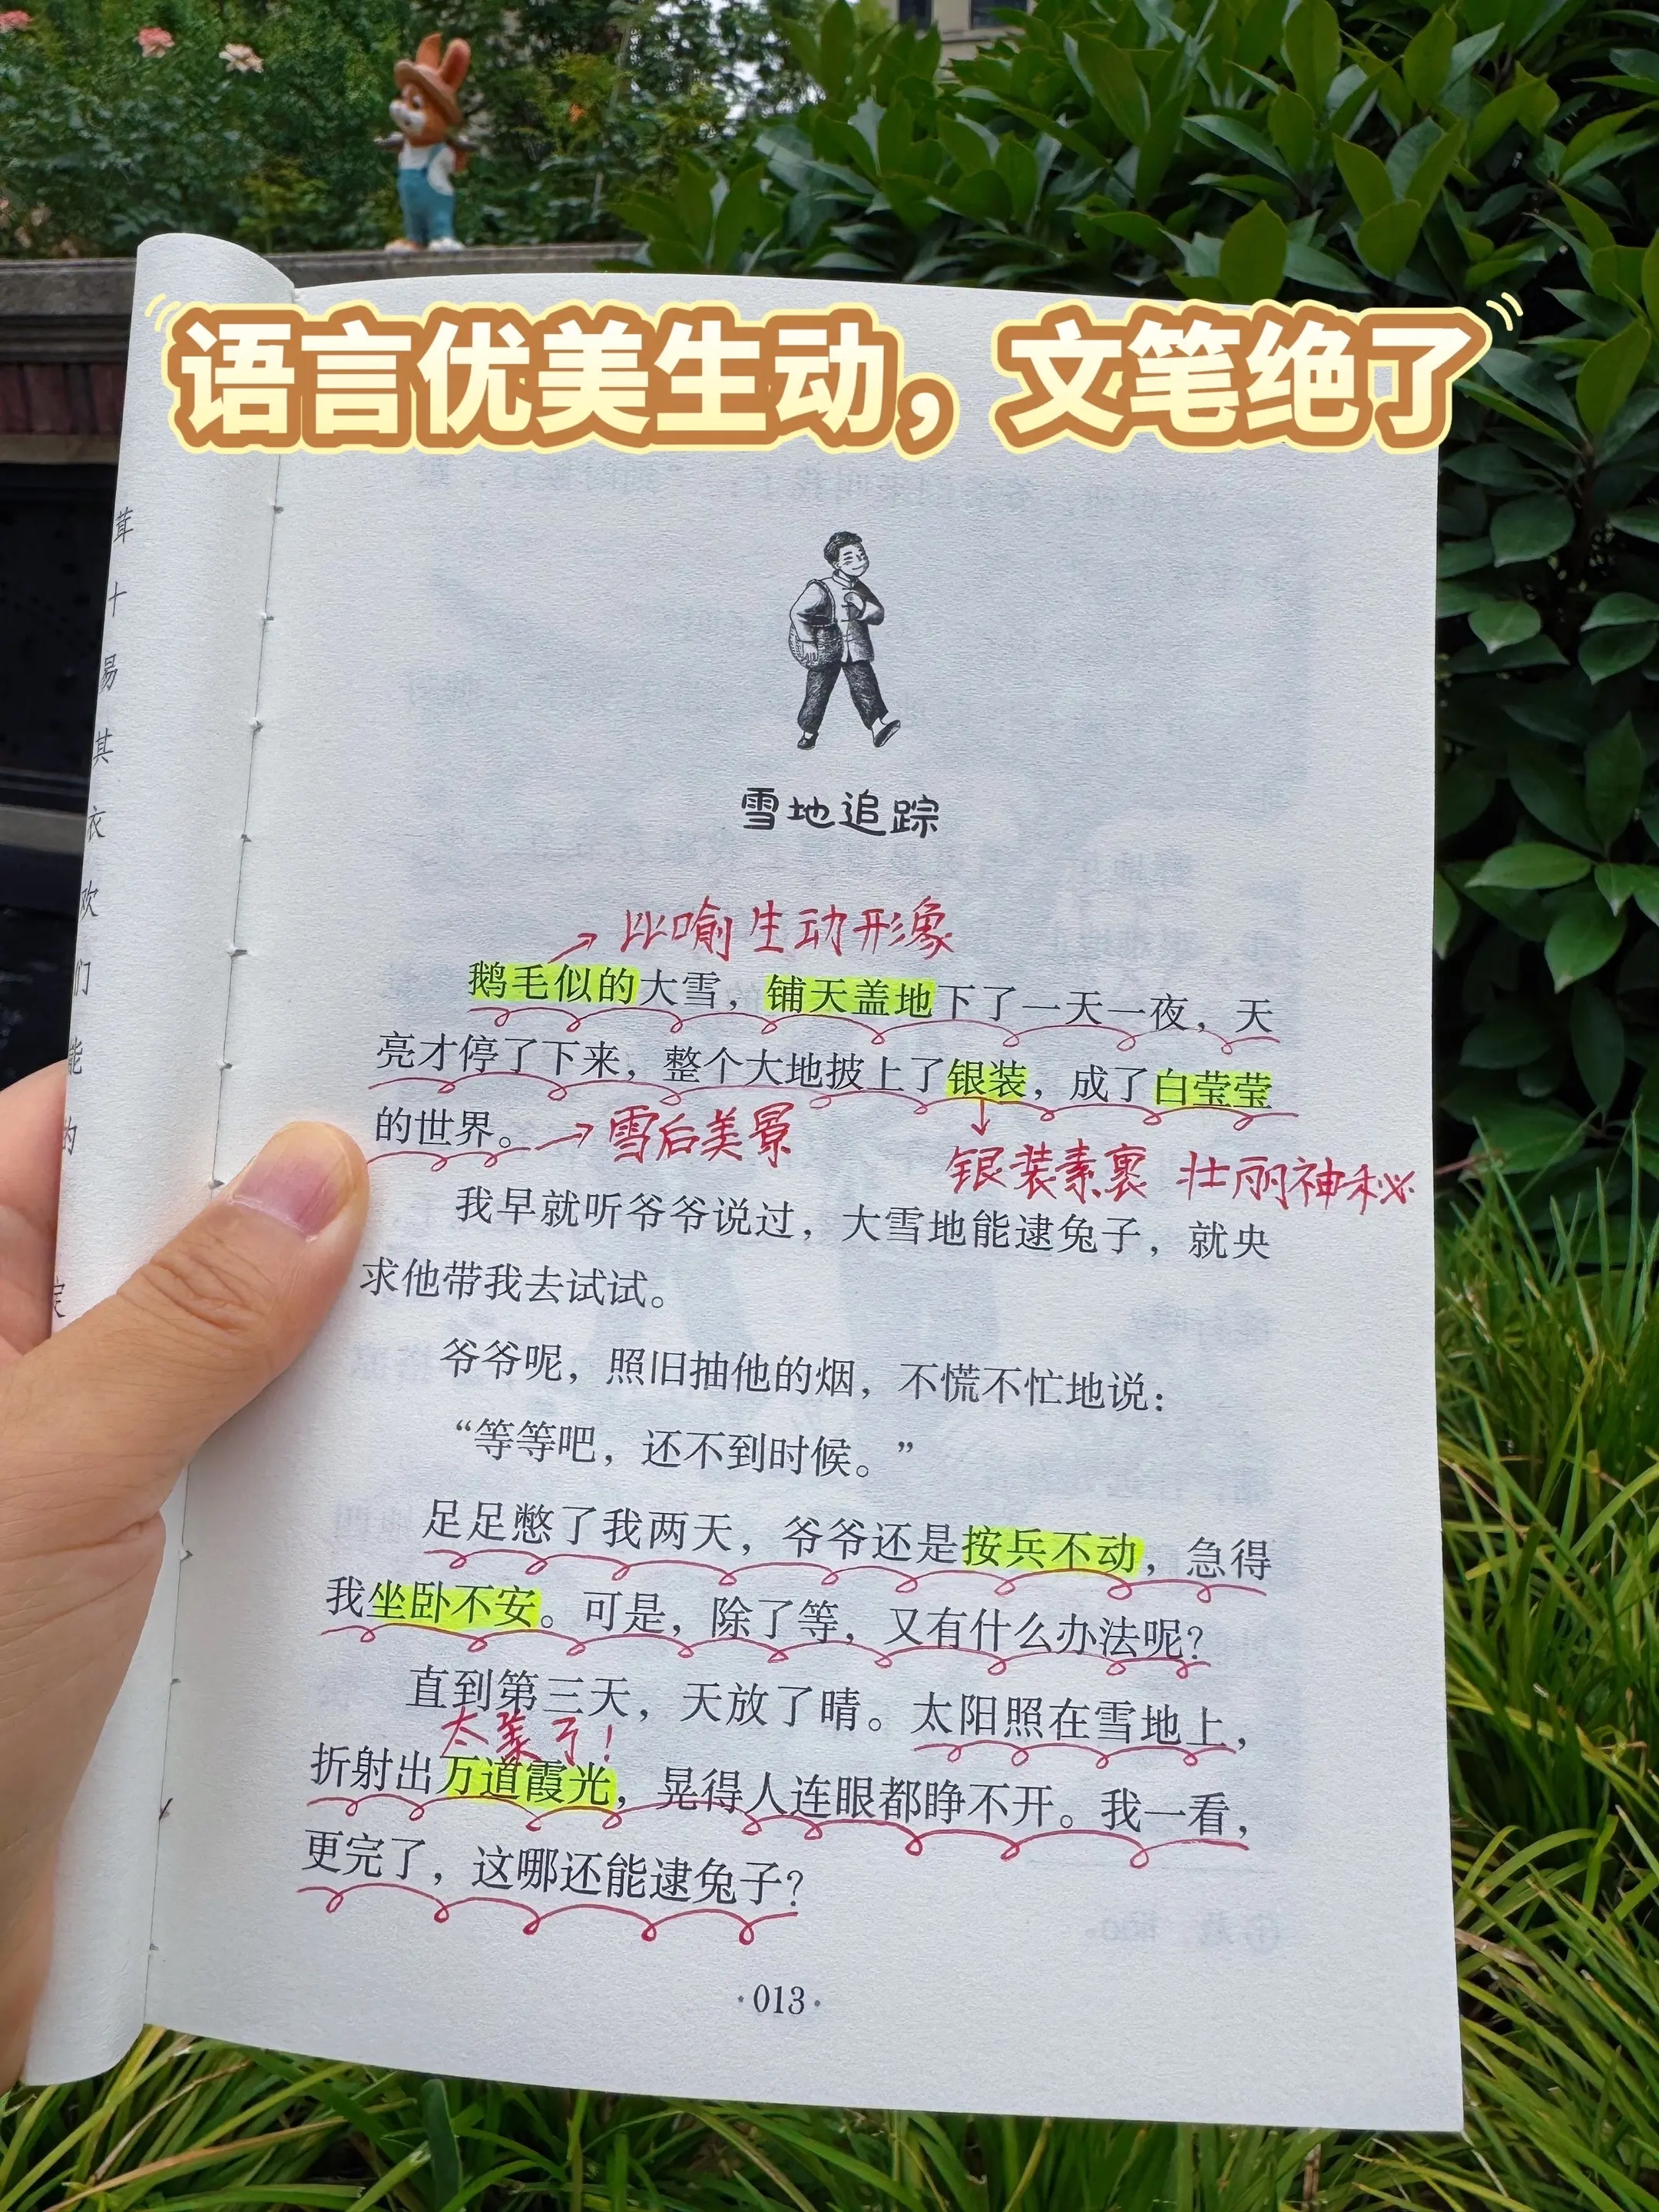 语言优美生动，文笔绝了
茸
十
易
其
衣
欢
们
能
的
定
雪地追踪
比喻 生动形象
鹅毛似的大雪，铺天盖地下了一天一夜，天
亮才停了下来，整个大地披上了银装，成了白莹莹
的世界。
雪后美景
银装素裹 壮丽神秘
我早就听爷爷说过，大雪地能逮兔子，就央
求他带我去试试。
爷爷呢，照旧抽他的烟，不慌不忙地说：
“等等吧，还不到时候。”
足足憋了我两天，爷爷还是按兵不动，急得
我坐卧不安。可是，除了等，又有什么办法呢？
直到第三天，天放了晴。太阳照在雪地上，
太美了！
折射出万道霞光，晃得人连眼都睁不开。我一看，
更完了，这哪还能逮兔子？
·013·